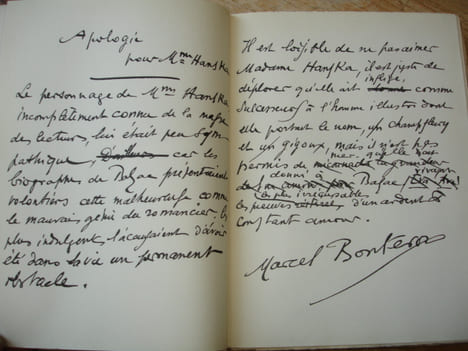 Apologie
pour Mme Hanska
Le personnage de Mme Hanska
incomplètement connue de la masse
des lecteurs, lui était peu sym
pathique, car les
biographes de Balzac présentaient
volontiers cette malheureuse comme
le mauvais génie du romancier. les
plus indulgents, l'accusaient d'avoir
été dans sa vie un permanent
obstacle.
Il est loisible de ne pas aimer
Madame Hanska, il est juste de
déplorer qu'elle ait infligé, comme
successeurs à l'homme illustre dont
elle portait le nom, un Champfleury
et un Gigoux, mais il n'est pas
permis de nier qu'elle ait
donné à Balzac
les preuves les plus irrécusables d'un ardent &
constant amour.
Marcel Bouteron